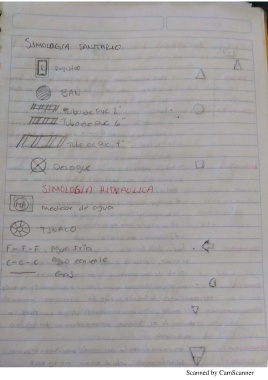 SIMOLOGIA SANITARIO
Registro
BAN
Tubo de PVC 2"
Tubo de PVC 6"
Tubo de PVC 4"
Desague
SIMOLOGIA HIDRAULICA
MA medidor de agua
TINACO
F-F-F Agua fria
C-C-C Agua caliente
Gas
Scanned by CamScanner